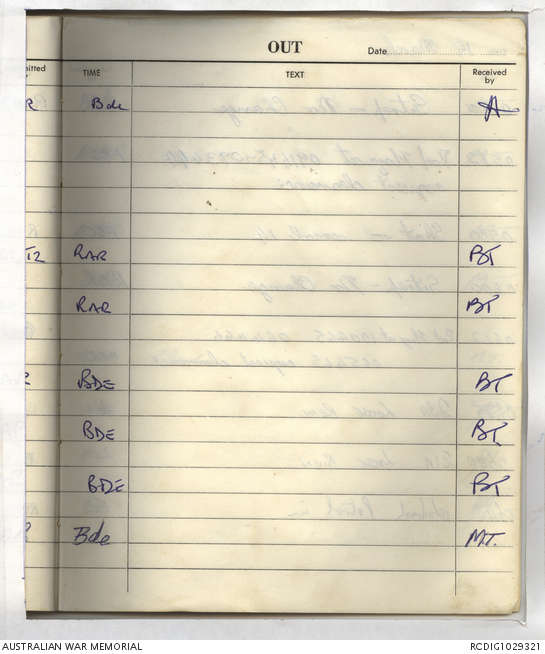 OUT
Date
TIME TEXT Received by
Bde
RAR BT
RAR BT
BDE BT
BDE BT
BDE BT
Bde M.T.
AUSTRALIAN WAR MEMORIAL RCDIG1029321